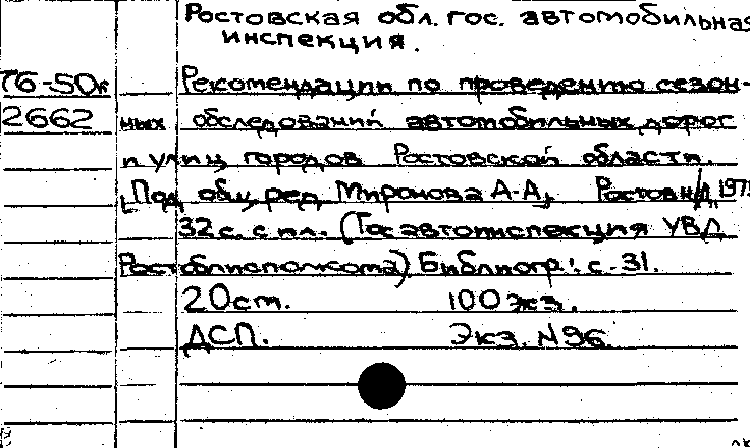 Ростовская обл. гос. автомобильная
инспекция.
76-50к Рекомендации по проведению сезон-
2662 ных обследований автомобильных дорог
и улиц городов Ростовской области.
[Под общ. ред. Миронова А.А., Ростов н/Д,
32 с. с ил. (Госавтоинспекция УВД
Ростоблисполкома) Библиогр.: с. 31.
20 см. 100 экз.
ДСП. Экз. N 96.